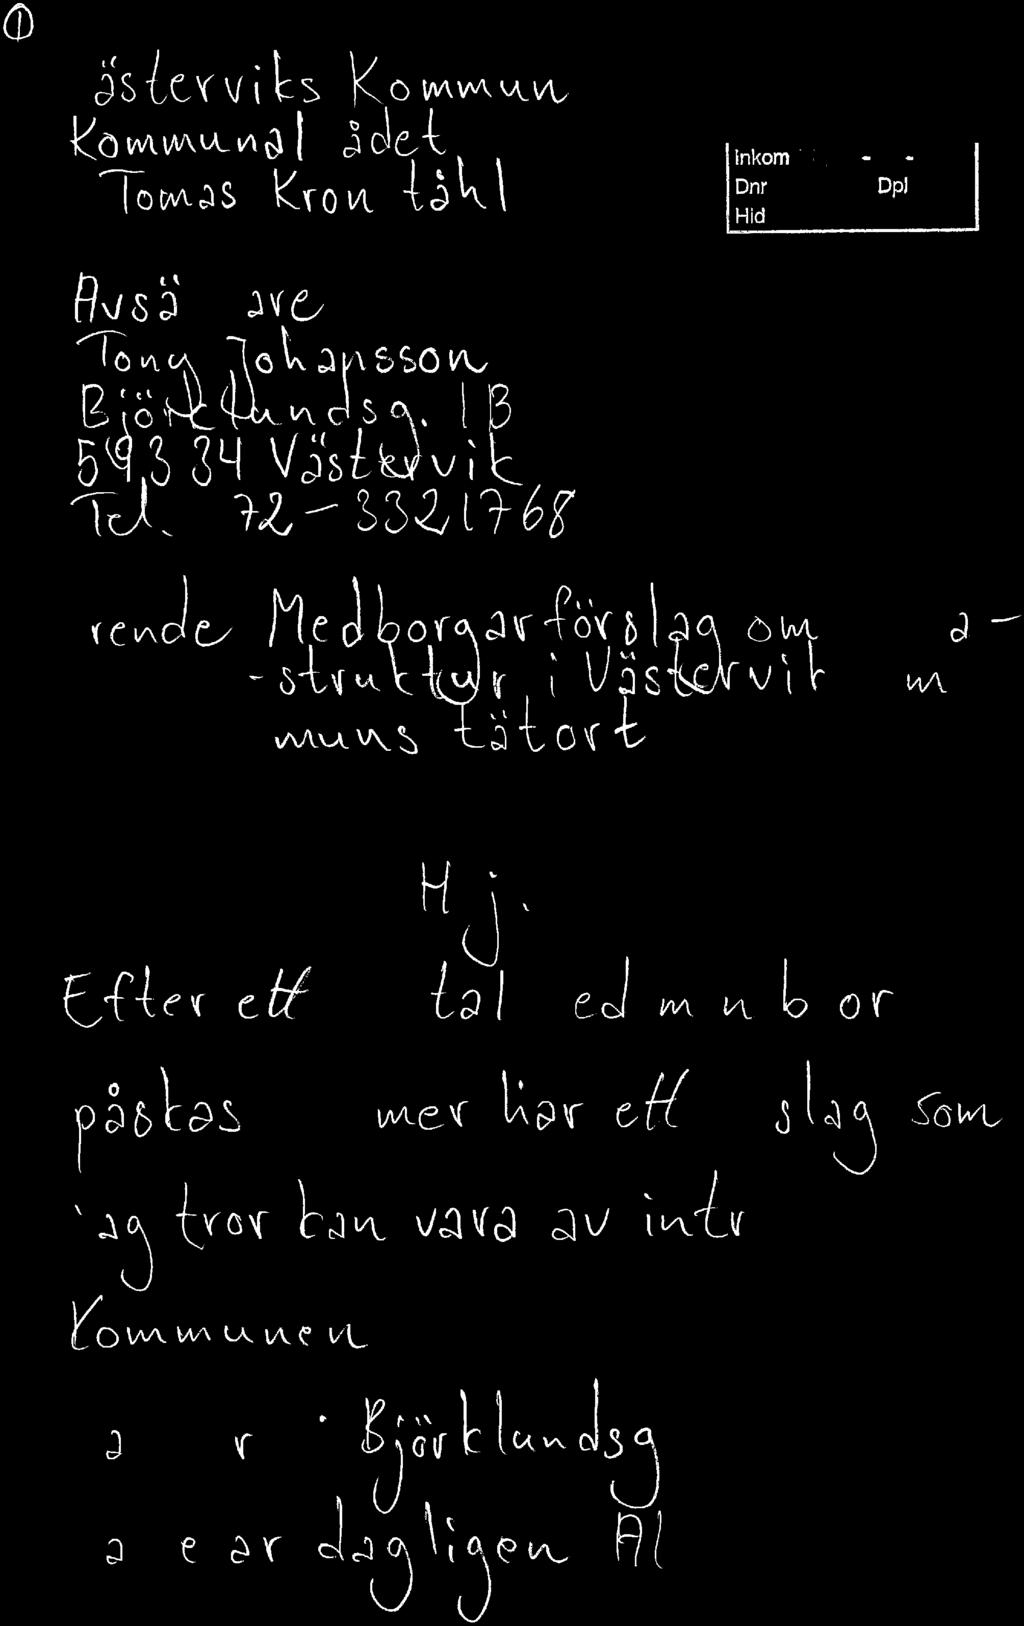 ①
ästerviks Kommun
Kommunal ådet
Tomas Kron tåhl
Inkom - -
Dnr Dpl
Hid
Avsä are
Tony Johansson
Björklundsg. 1B
593 34 Västervik
Tel. 72-3321768
rende Medborgarförslag om a-
-struktur i Västervik m
muns tätort
H j.
Efter ett tal ed m n b or
påskas mer här ett slag som
ag tror kan vara av intr
Kommunen
a r Björklundsg
a e ar dagligen Al